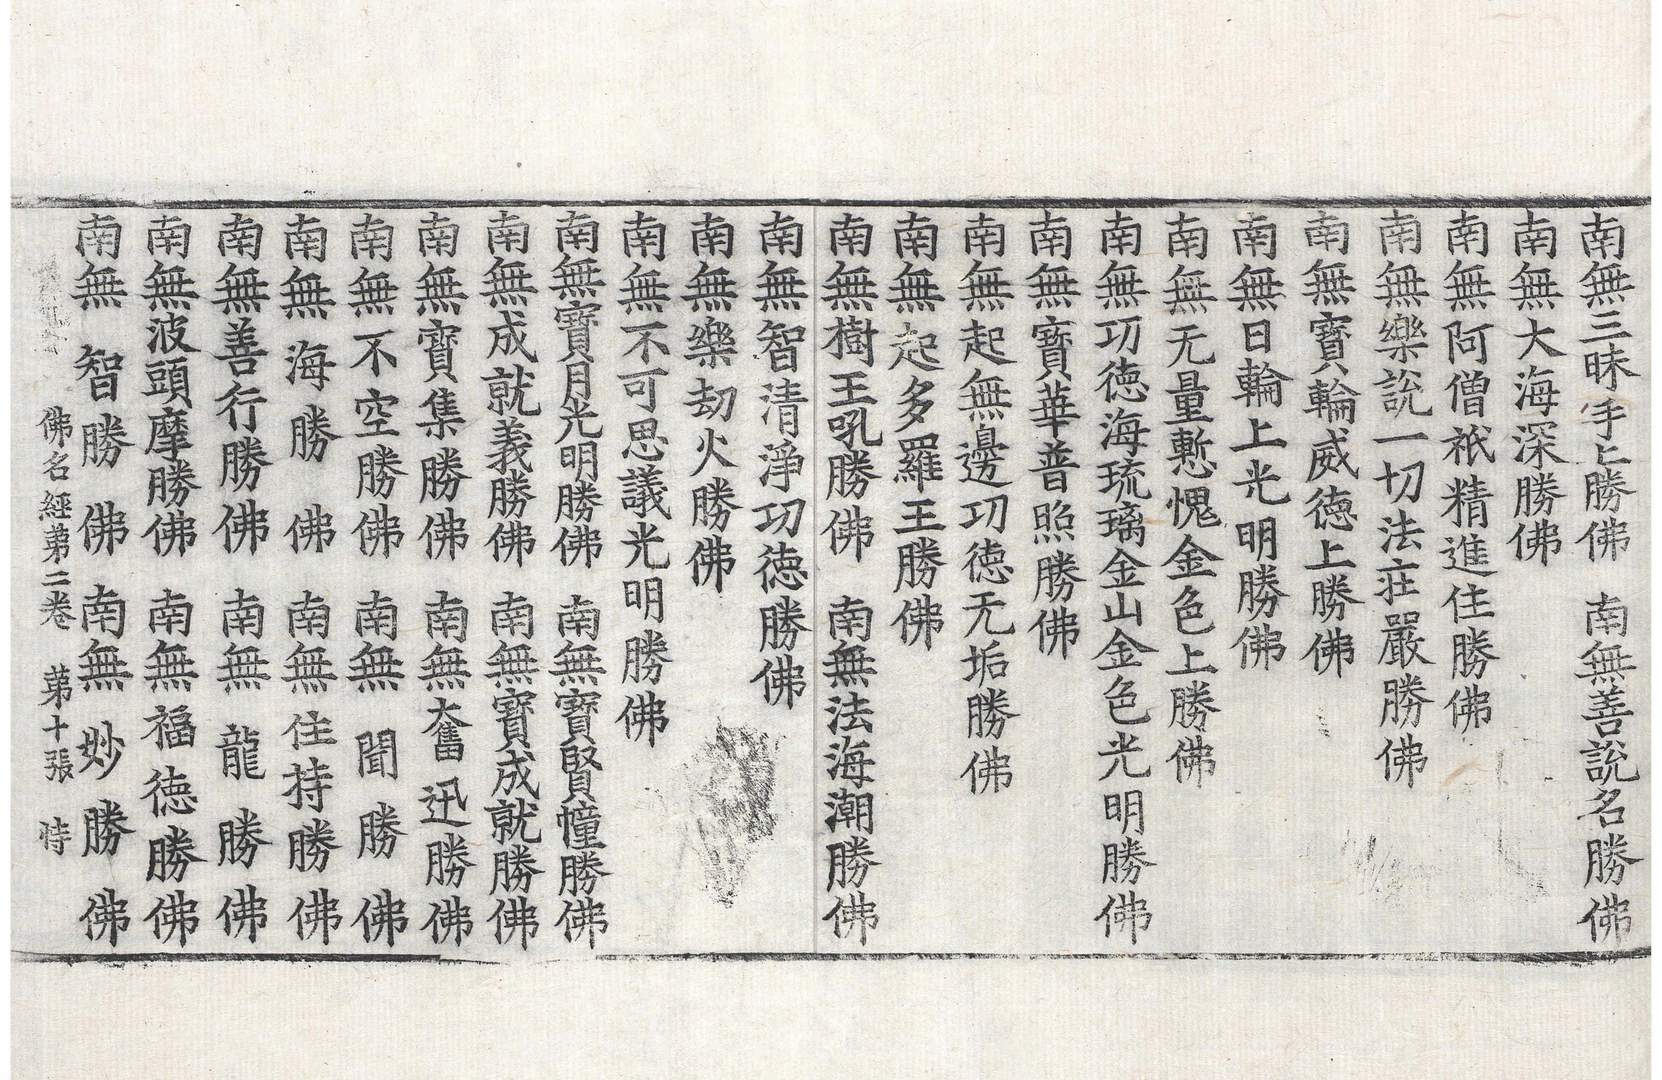 南無三昧手上勝佛　南無善說名勝佛
南無大海深勝佛
南無阿僧祇精進住勝佛
南無樂說一切法莊嚴勝佛
南無寶輪威德上勝佛
南無日輪上光明勝佛
南無无量慙愧金色上勝佛
南無功德海琉璃金山金色光明勝佛
南無寶華普照勝佛
南無起無邊功德无垢勝佛
南無起多羅王勝佛
南無樹王吼勝佛　南無法海潮勝佛
南無智清淨功德勝佛
南無樂劫火勝佛
南無不可思議光明勝佛
南無寶月光明勝佛　南無寶賢幢勝佛
南無成就義勝佛　南無寶成就勝佛
南無寶集勝佛　南無奮迅勝佛
南無不空勝佛　南無聞勝佛
南無海勝佛　南無住持勝佛
南無善行勝佛　南無龍勝佛
南無波頭摩勝佛　南無福德勝佛
南無智勝佛　南無妙勝佛
佛名經第二卷　第十張　恃